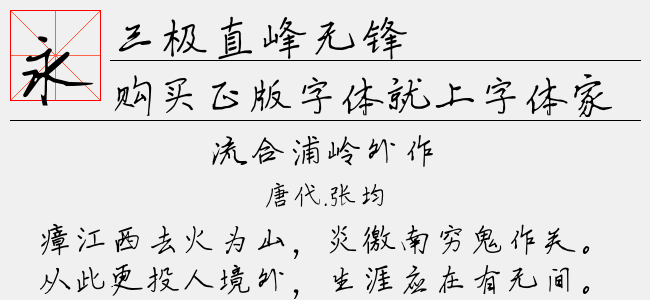 永
三极直峰无锋
购买正版字体就上字体家
流合浦岭外作
唐代.张均
瘴江西去火为山，炎徼南穷鬼作关。
从此更投人境外，生涯应在有无间。